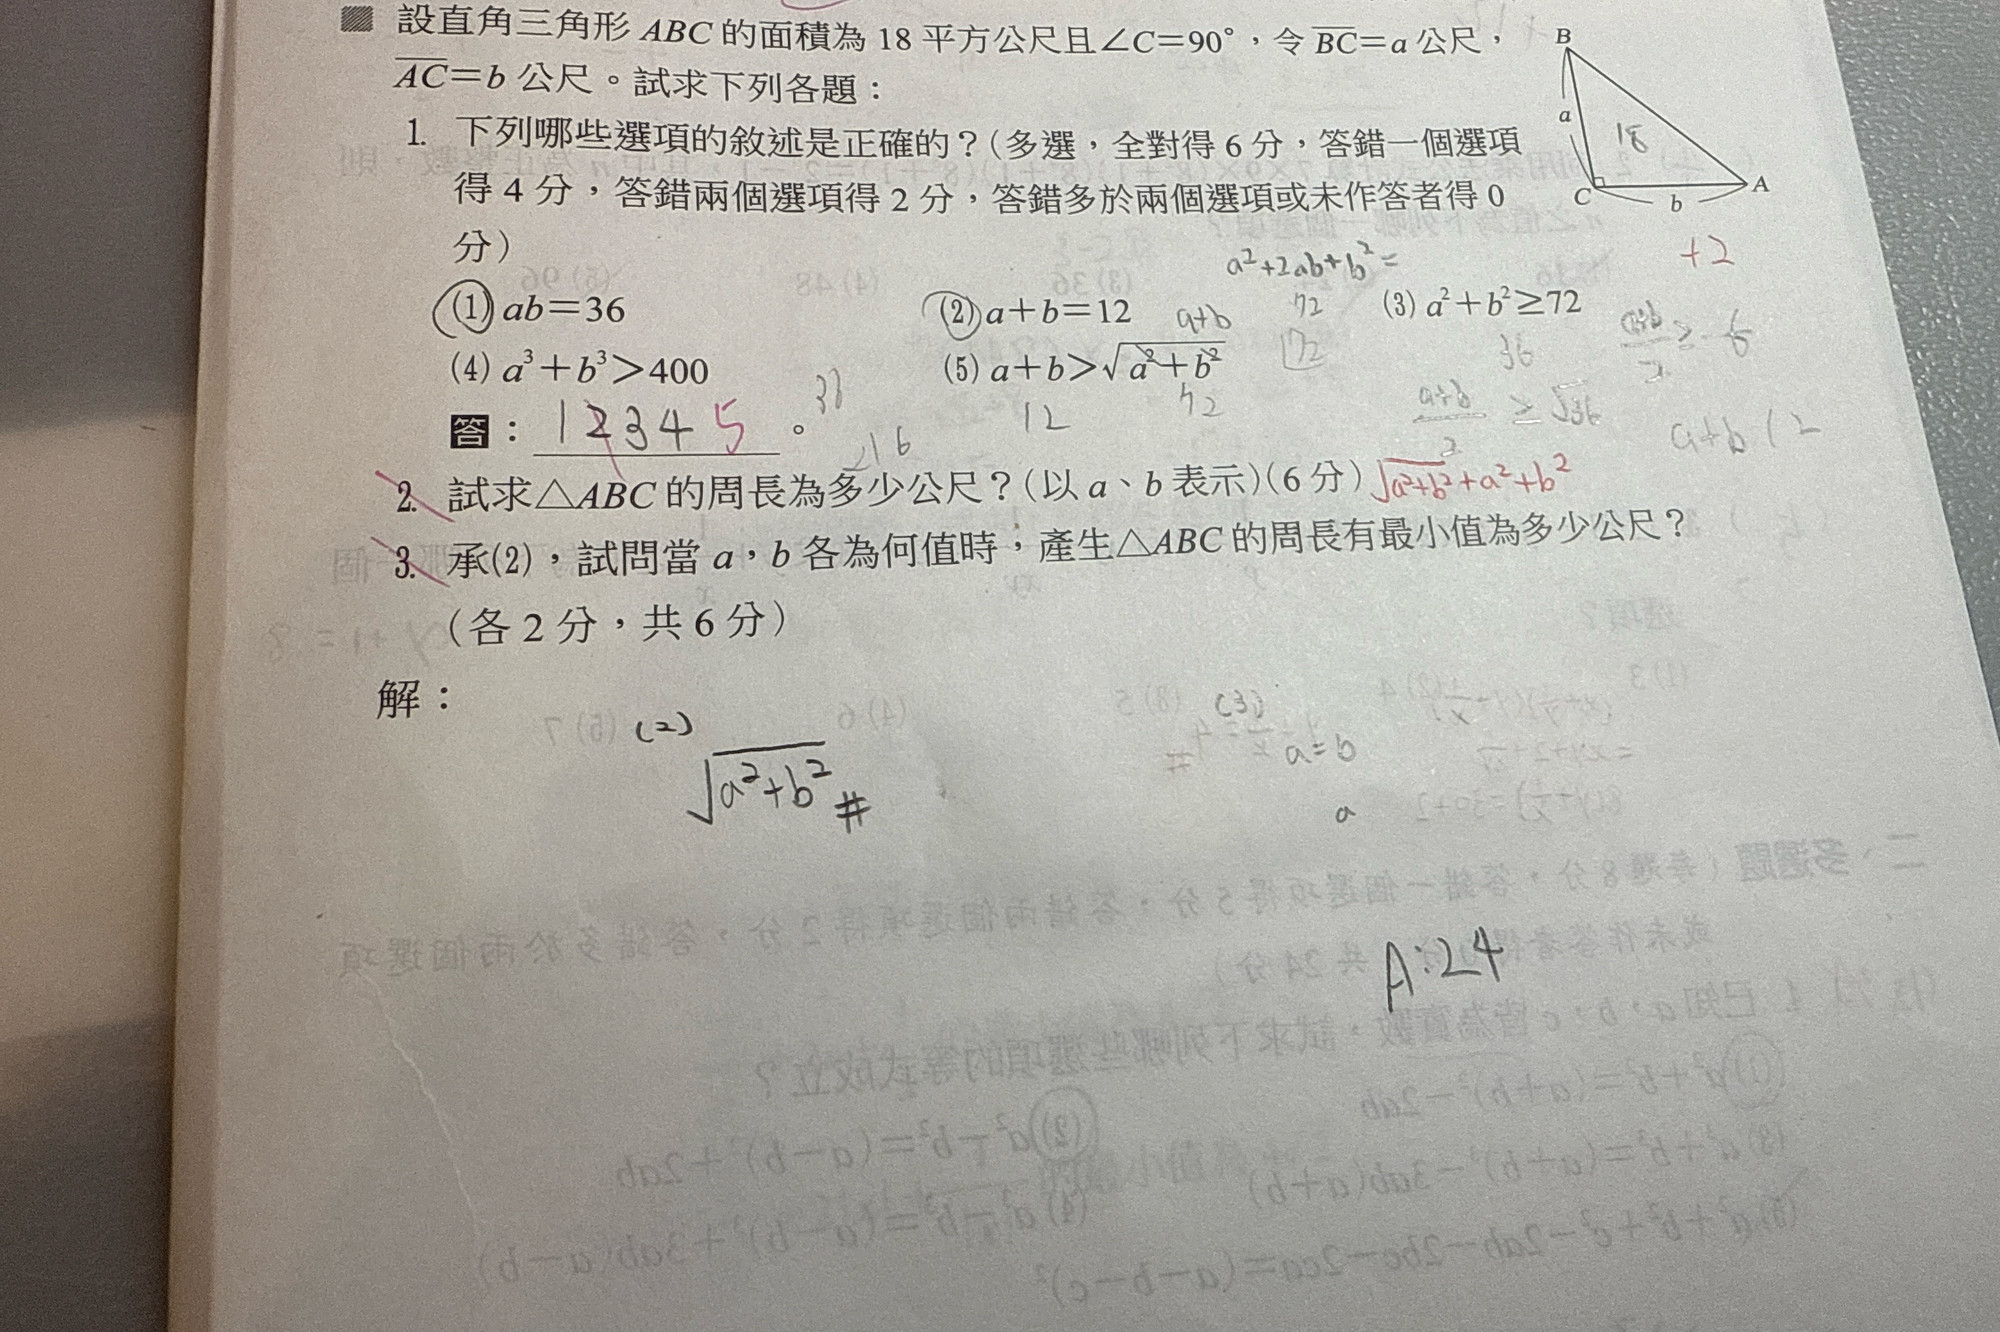 設直角三角形 ABC 的面積為 18 平方公尺且∠C=90°,令 BC=a 公尺,
AC=b 公尺。試求下列各題:
B
a
18
C
b
A
1. 下列哪些選項的敘述是正確的?(多選,全對得 6 分,答錯一個選項
得 4 分,答錯兩個選項得 2 分,答錯多於兩個選項或未作答者得 0
分)
a²+2ab+b²=
+2
(1) ab=36
(2) a+b=12
a+b
72
(3) a²+b²≥72
72
36
(4) a³+b³>400
(5) a+b>√a²+b²
12
72
a+b/2 ≥ √36
a+b 12
答: 1 2 3 4 5 。
216
2. 試求△ABC 的周長為多少公尺?(以 a、b 表示)(6 分) √a²+b²+a²+b²
3. 承(2),試問當 a,b 各為何值時,產生△ABC 的周長有最小值為多少公尺?
(各 2 分,共 6 分)
解:
(2)
√a²+b² #
(3)
a=b
a
A:24